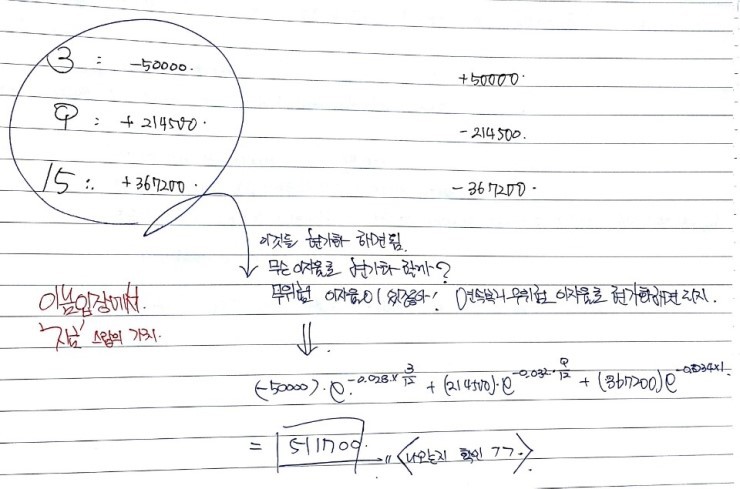 3 : -50000. +50000.
9 : +214500. -214500.
15 : +367200. -367200.
이것들 현가화 하면됨.
무슨 이자율로 현가화 할까?
무위험 이자율이 있잖아! 연속복리 무위험 이자율로 현가화해면 되지.
이놈입장에서
'지금' 스왑의 가치.
(-50000)·e^{-0.028×3/12} + (214500)·e^{-0.032·9/12} + (367200)e
= 511700.
< 나오는지 확인 ㄱㄱ. >